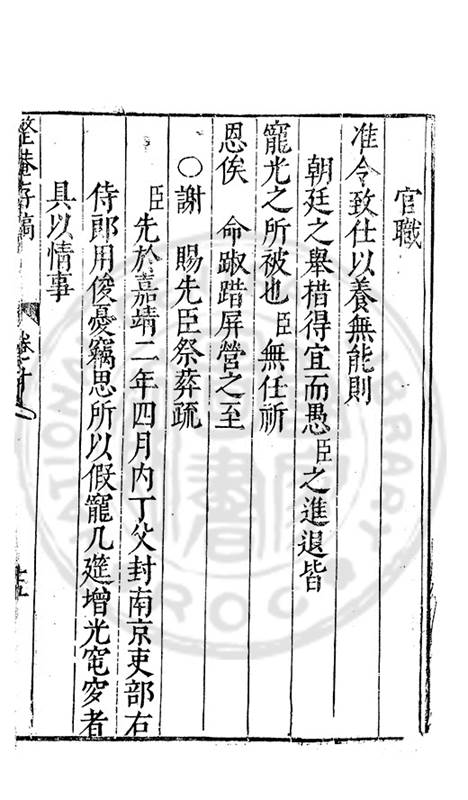 官職
准令致仕以養無能則
朝廷之舉措得宜而愚臣之進退皆
寵光之所被也臣無任祈
恩俟　命踧踖屏營之至
○謝　賜先臣祭葬疏
臣先於嘉靖二年四月內丁父封南京吏部右
侍郎用俊憂竊思所以假寵几筵增光窀穸者
具以情事
整菴存稿
卷之十
十五